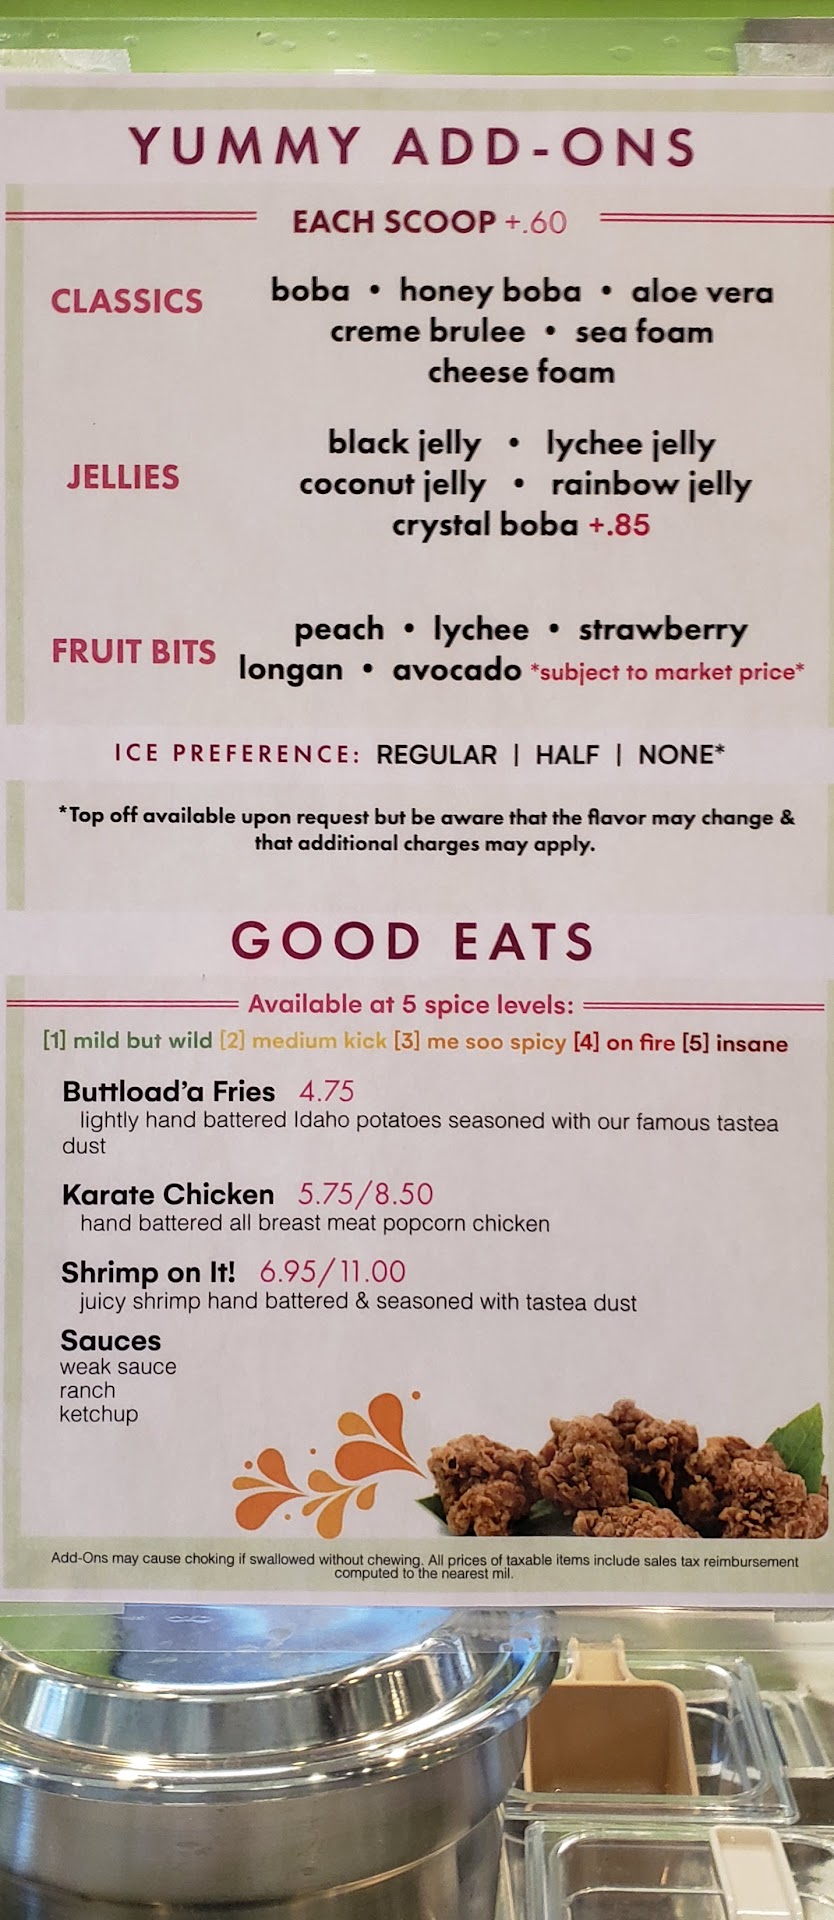 YUMMY ADD-ONS
EACH SCOOP +.60
CLASSICS
boba • honey boba • aloe vera
creme brulee • sea foam
cheese foam
JELLIES
black jelly • lychee jelly
coconut jelly • rainbow jelly
crystal boba +.85
FRUIT BITS
peach • lychee • strawberry
longan • avocado *subject to market price*
ICE PREFERENCE: REGULAR | HALF | NONE*
*Top off available upon request but be aware that the flavor may change &
that additional charges may apply.
GOOD EATS
Available at 5 spice levels:
[1] mild but wild [2] medium kick [3] me soo spicy [4] on fire [5] insane
Buttload'a Fries 4.75
lightly hand battered Idaho potatoes seasoned with our famous tastea
dust
Karate Chicken 5.75/8.50
hand battered all breast meat popcorn chicken
Shrimp on It! 6.95/11.00
juicy shrimp hand battered & seasoned with tastea dust
Sauces
weak sauce
ranch
ketchup
Add-Ons may cause choking if swallowed without chewing. All prices of taxable items include sales tax reimbursement
computed to the nearest mil.